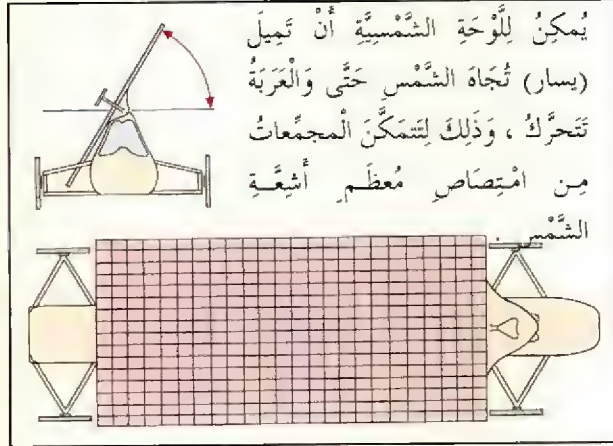 يُمكِنُ لِلَّوْحَةِ الشَّمْسِيَّةِ أَنْ تَمِيلَ
(يسار) تُجَاهَ الشَّمْسِ حَتَّى وَالْعَرَبَةُ
تَتَحرَّكُ ، وَذَلِكَ لِتَتمَكَّنَ الْمجمِّعاتُ
مِن امْتِصَاصِ مُعظَمِ أَشِعَّةِ
الشَّمْسِ .